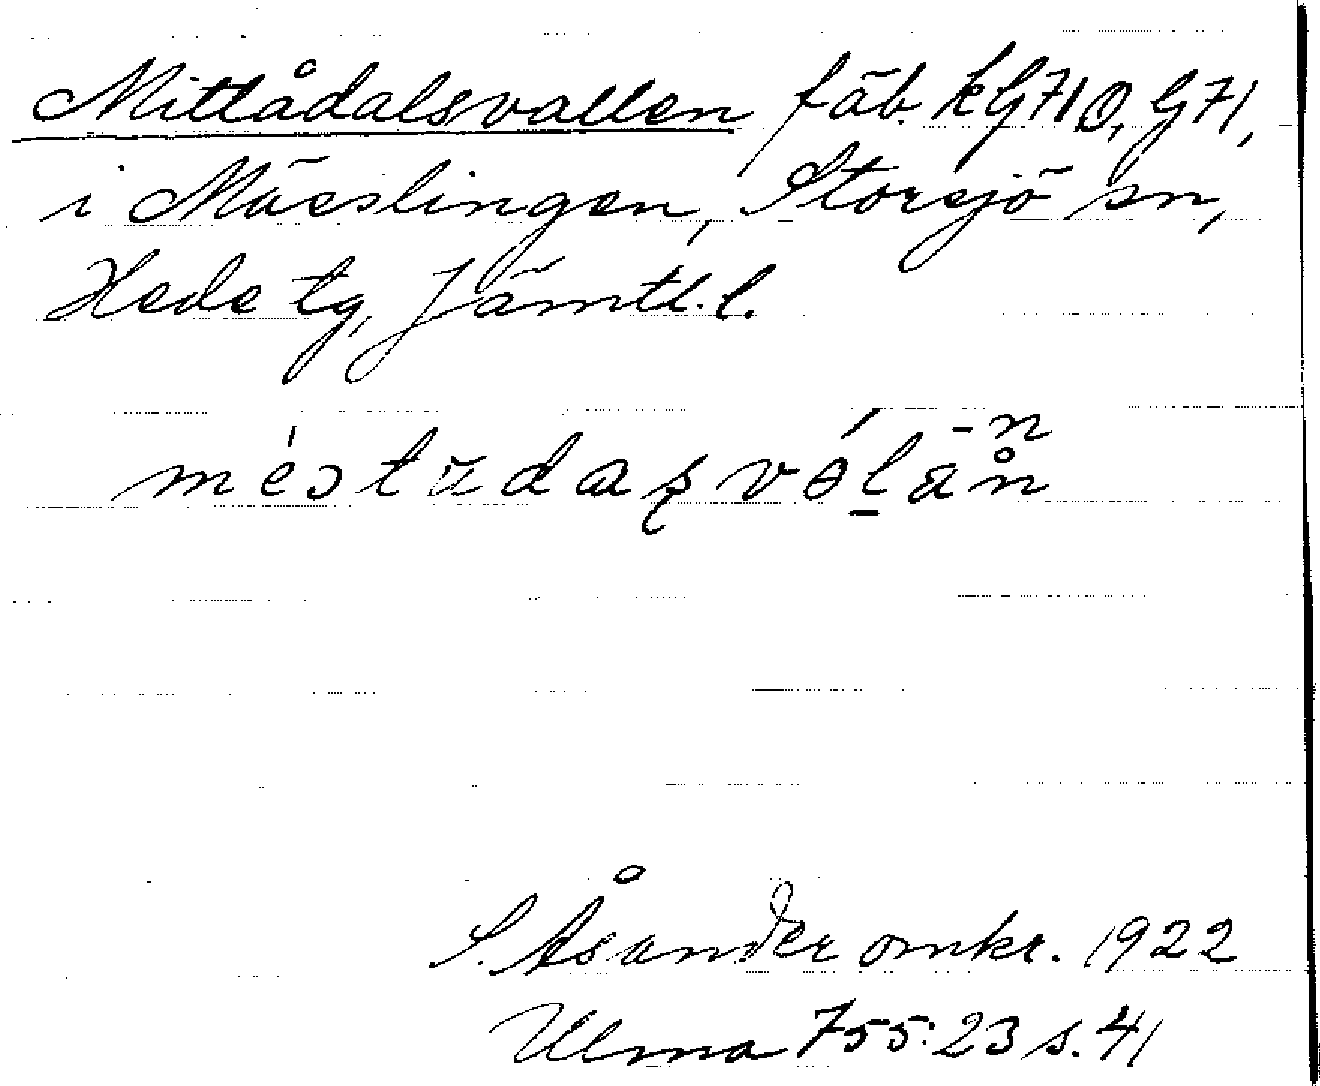 Mittådalsvallen fäb. kG710, G71,
i Mässlingen, Storsjö sn,
Hede tg, Jämtl.l.
S. Åsander omkr. 1922
Ulma 755:23 s. 41